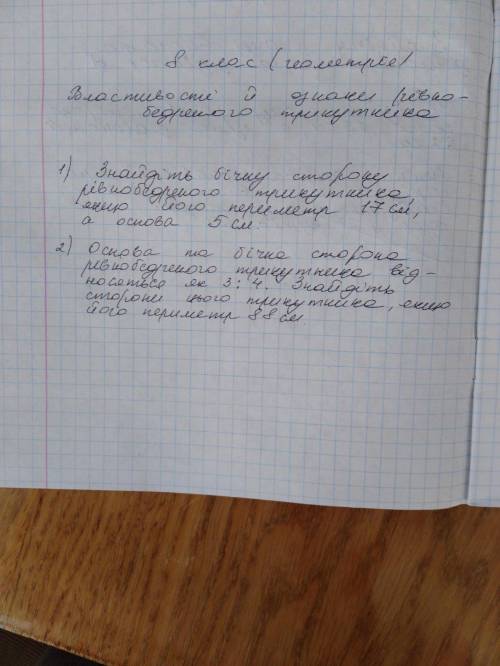 8 клас (геометрія)
Властивості й ознаки рівно-
бедреного трикутника
1) Знайдіть бічну сторону
рівнобедреного трикутника,
якщо його периметр 17 см,
а основа 5 см.
2) Основа та бічна сторона
рівнобедреного трикутника від-
носяться як 3:4. Знайдіть
сторони цього трикутника, якщо
його периметр 88 см